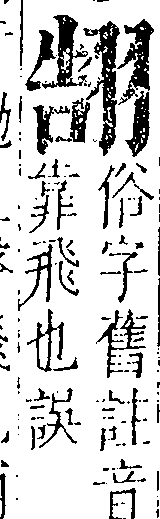 俗字舊註音
靠飛也誤